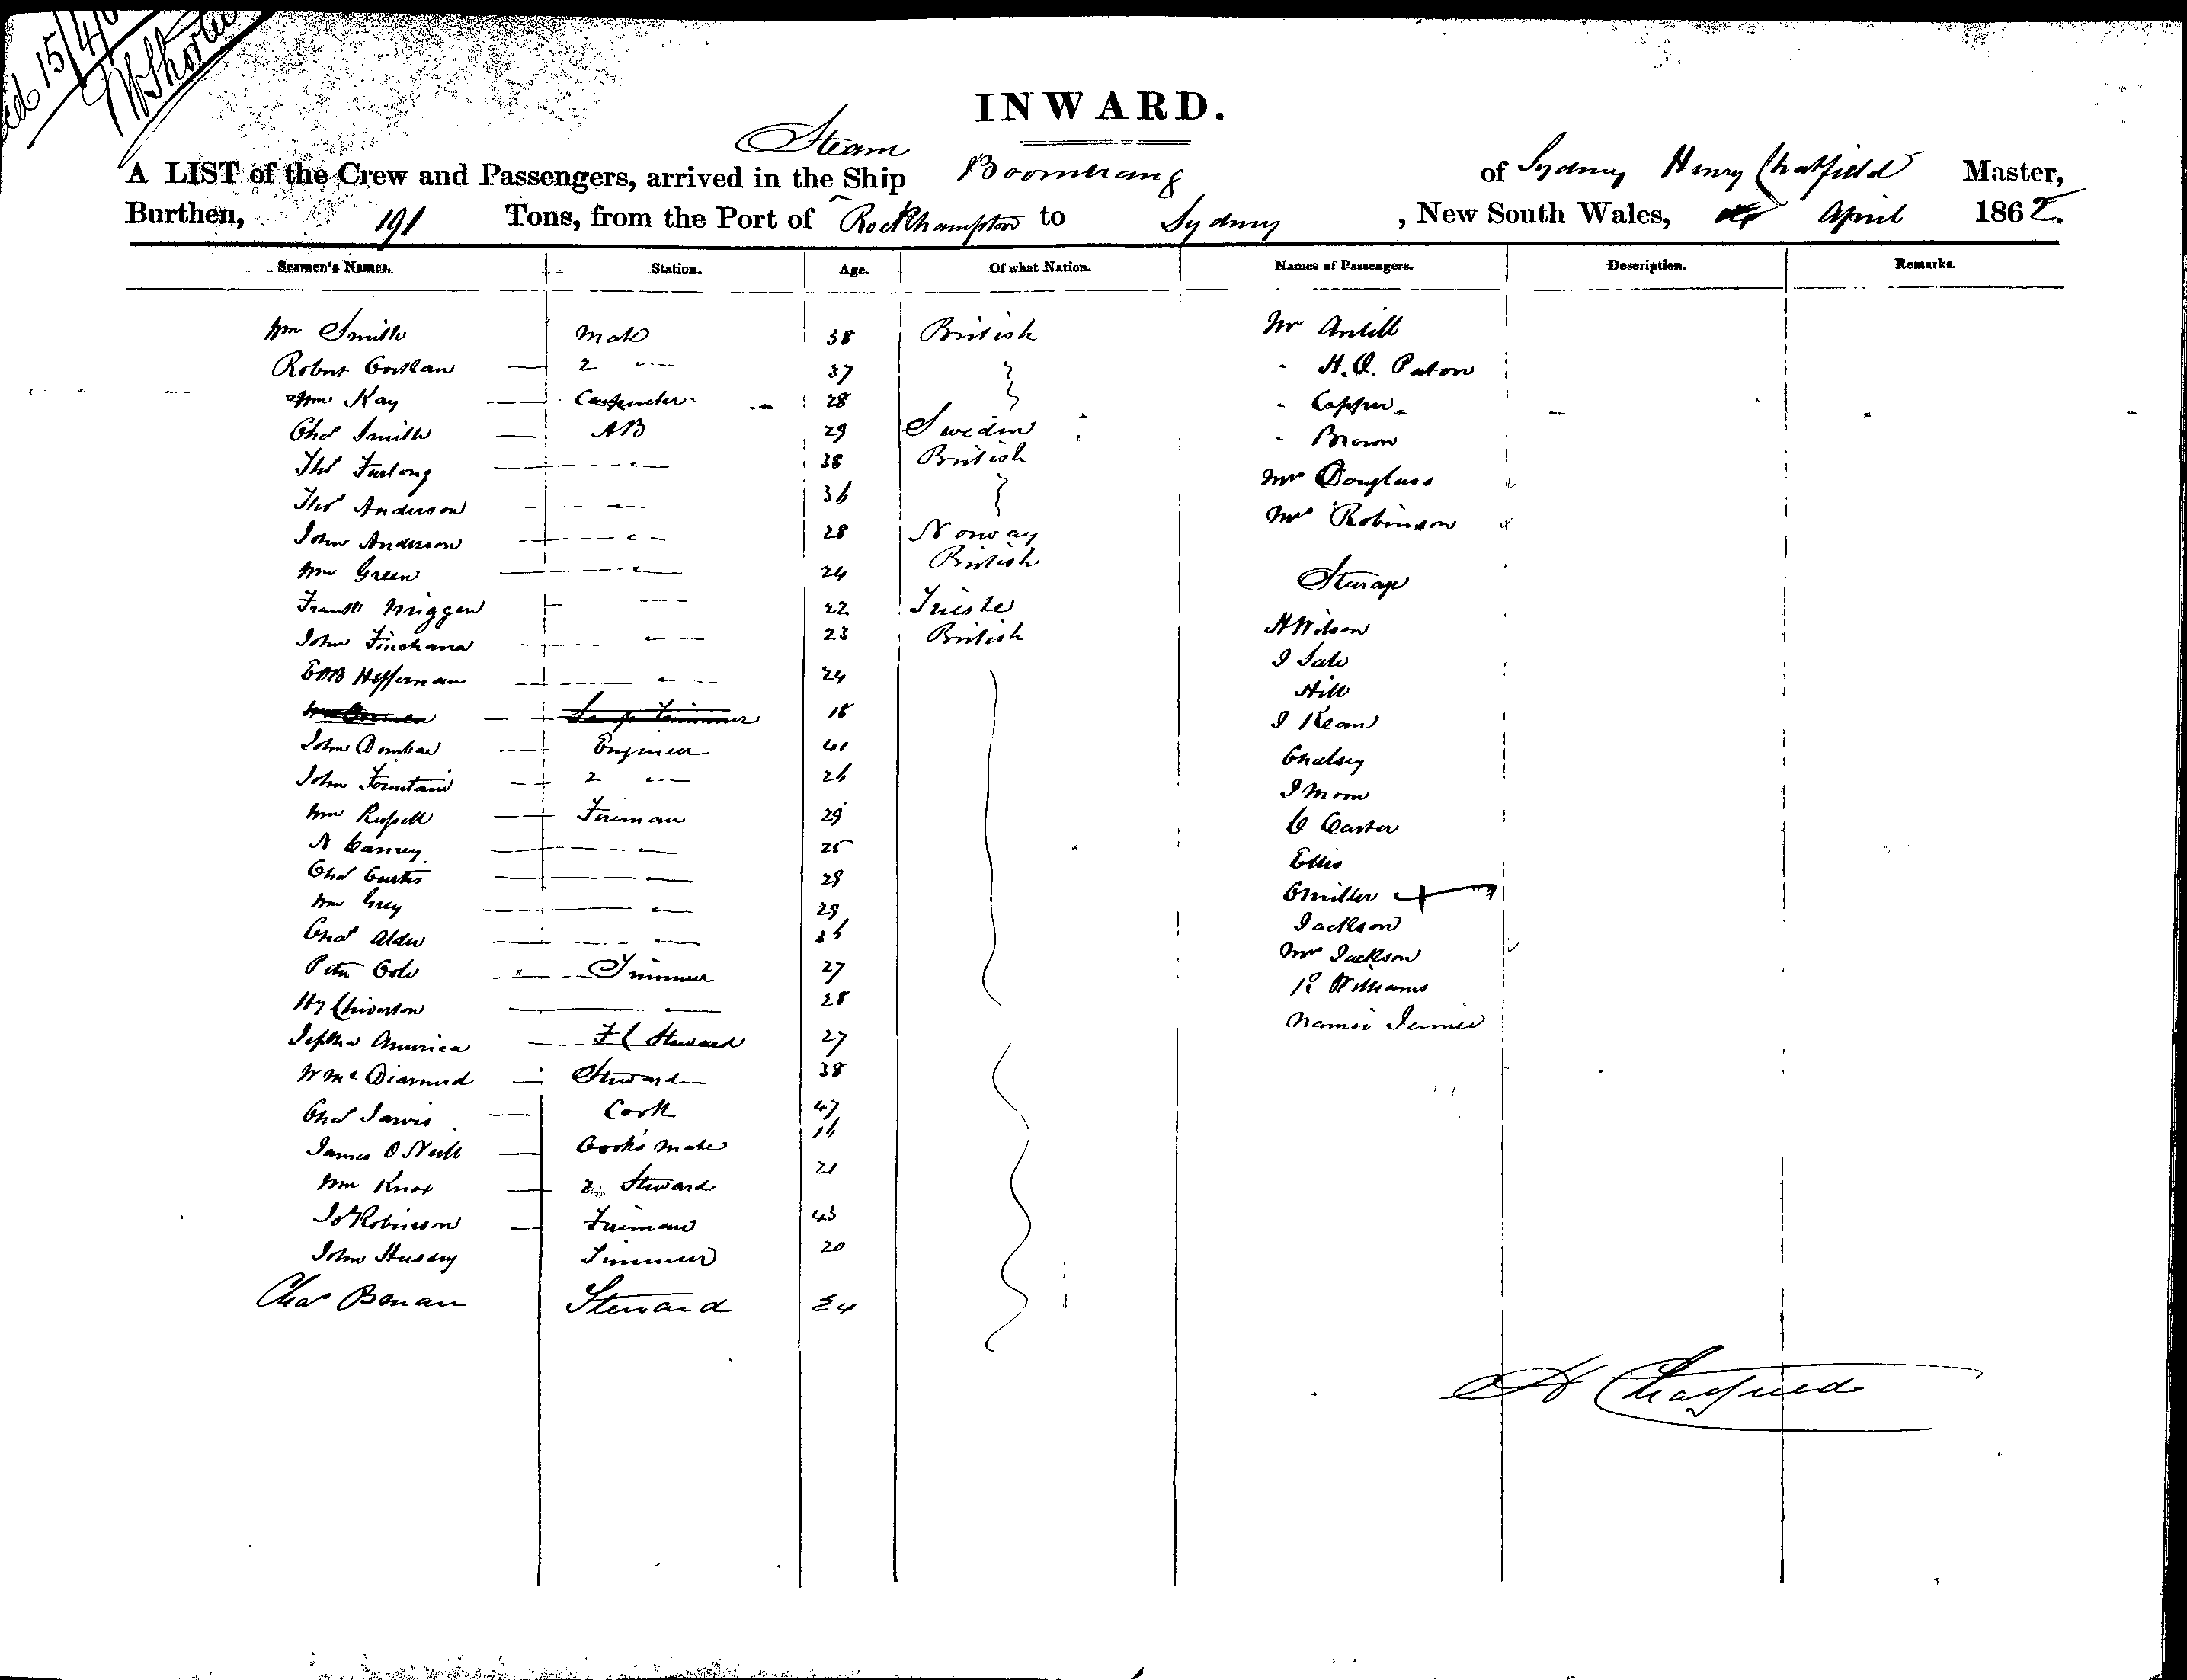 15/4/6
INWARD.
Steam
A LIST of the Crew and Passengers, arrived in the Ship Boomerang of Sydney Henry Chatfield Master,
Burthen, 191 Tons, from the Port of Rockhampton to Sydney , New South Wales, April 1862.
Seamen's Names. Station. Age. Of what Nation. Names of Passengers. Description. Remarks.
Wm Smith Mate 38 British Mr Antill
Robert 2 " 37 H. Q. Paton
Wm Kay Carpenter 28 Capper
Chas Smith AB 29 Sweden Brown
Thos Furlong 38 British Mr Douglass
Thos Anderson 36 Mrs Robinson
John Anderson 28 Norway
Wm Green 24 British Steerage
Frank 22 Trieste H Wilson
John 23 British
Heffernan 24 Hill
18 J Kean
John Engineer 41 Chalsey
John Fountain 2 " 26 J Moon
Wm Russell Fireman 29 C Carter
N 25 Ellis
Chas Curtis 29 C Miller
Wm Grey 29 Jackson
Chas Alder 36 Mr Jackson
Peter Cole Trimmer 27 R Williams
Hy Chiverton 28
Jeptha America F C Steward 27
W McDiarmid Steward 38
Chas Jarvis Cook 47
James O Neill Cook's Mate 16
Wm Knox 2 Steward 21
Jos Robinson Fireman 43
John Hussey Trimmer 20
Chas Steward 24
H Chatfield